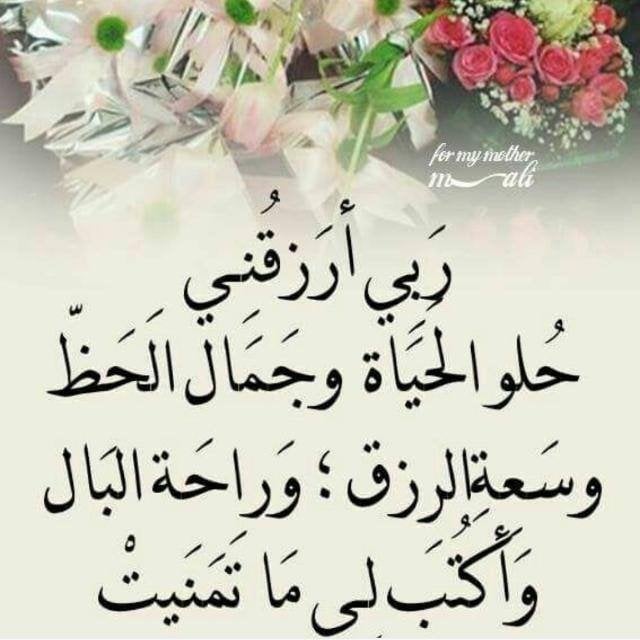 for my mother
m ali
رَبي أرَزقُني
حُلو الحَيَاة وجَمَال الَحَظّ
وسَعةِالرزق ؛ وَراحَة البَال
وَأكَتُبَ لي مَا تَمَنَيتْ